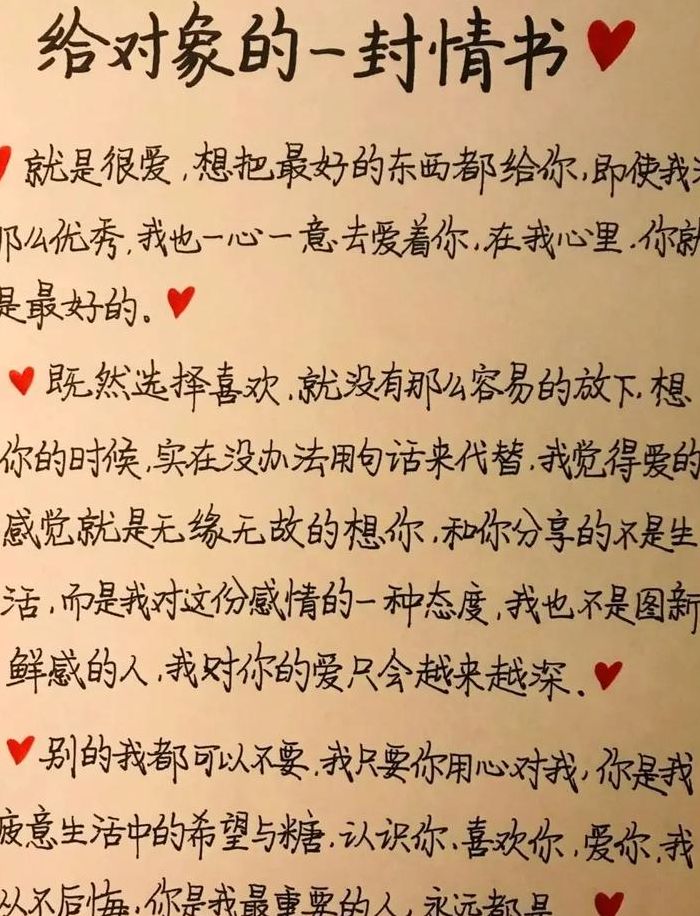 给对象的一封情书
就是很爱,想把最好的东西都给你,即使我没
那么优秀,我也一心一意去爱着你,在我心里.你就
是最好的。
既然选择喜欢,就没有那么容易的放下,想
你的时候,实在没办法用句话来代替,我觉得爱的
感觉就是无缘无故的想你,和你分享的不是生
活,而是我对这份感情的一种态度,我也不是图新
鲜感的人,我对你的爱只会越来越深.
别的我都可以不要,我只要你用心对我,你是我
疲惫生活中的希望与糖,认识你、喜欢你,爱你,我
从不后悔,你是我最重要的人,永远都是